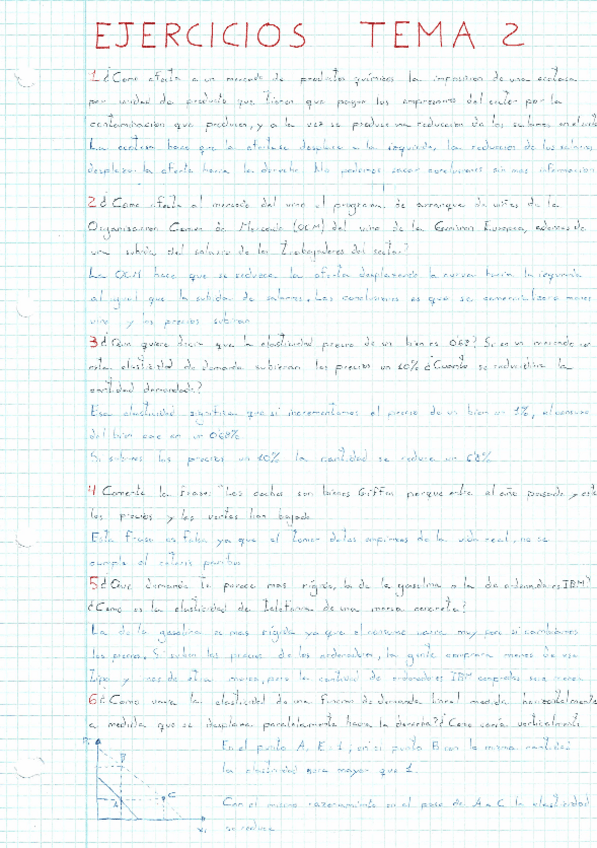 EJERCICIOS TEMA 2
1 ¿Como afecta a un mercado de productos químicos la imposicion de una ecotasa
por unidad de producto que tienen que pagar los empresarios del sector por la
contaminacion que producen, y a la vez se produce una reduccion de los salarios en el
La ecotasa hace que la oferta se desplace a la izquierda, la reduccion de los salarios
desplazara la oferta hacia la derecha. No podemos sacar conclusiones sin mas informacion
2 ¿Como afecta al mercado del vino el programa de arranque de viñas de la
Organizacion Comun de Mercado (OCM) del vino de la Union Europea, ademas de
una subida del salario de los trabajadores del sector?
La OCM hace que se reduzca la oferta desplazando la curva hacia la izquierda
al igual que la subida de salarios. Las conclusiones es que se comercializara menos
vino y los precios subiran
3 ¿Que quiere decir que la elasticidad precio de un bien es 0,68? Si en un mercado con
esta elasticidad de demanda subieran los precios un 10% ¿Cuanto se reduciria la
cantidad demandada?
Esa elasticidad significa que si incrementamos el precio de un bien un 1%, el consumo
del bien cae en un 0,68%
Si subimos los precios un 10% la cantidad se reduce un 6,8%
4 Comente la frase: "Los coches son bienes Giffen porque entre el año pasado y este
los precios y las ventas han bajado
Esta frase es falsa ya que al tomar datos empiricos de la vida real, no se
cumple el ceteris paribus
5 ¿Que demanda te parece mas rigida, la de la gasolina o la de ordenadores IBM?
¿Como es la elasticidad de telefonos de una marca concreta?
La de la gasolina es mas rigida ya que el consumo varia muy poco si cambiamos
los precios. Si suben los precios de los ordenadores, la gente comprara menos de ese
tipo y mas de otra marca, pero la cantidad de ordenadores IBM comprados sera menor
6 ¿Como varia la elasticidad de una funcion de demanda lineal medida horizontalmente
a medida que se desplaza paralelamente hacia la derecha? ¿Como varia verticalmente
En el punto A, E=1, en el punto B con la misma cantidad
la elasticidad sera mayor que 1.
B
A
C
Con el mismo razonamiento en el paso de A a C la elasticidad
se reduce